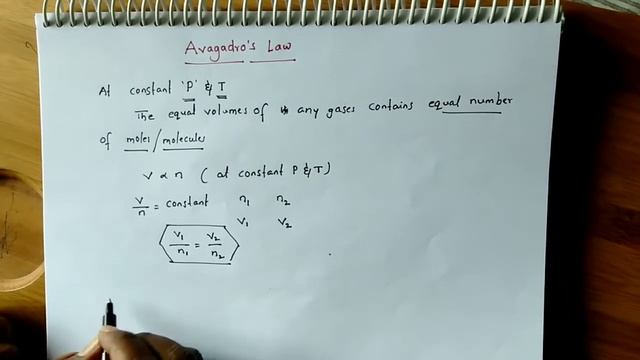 Avagadro's Law
At constant 'P' & T
The equal volumes of any gases contains equal number
of moles/molecules
V ∝ n ( at constant P & T)
V/n = constant n₁ n₂
V₁ V₂
V₁/n₁ = V₂/n₂